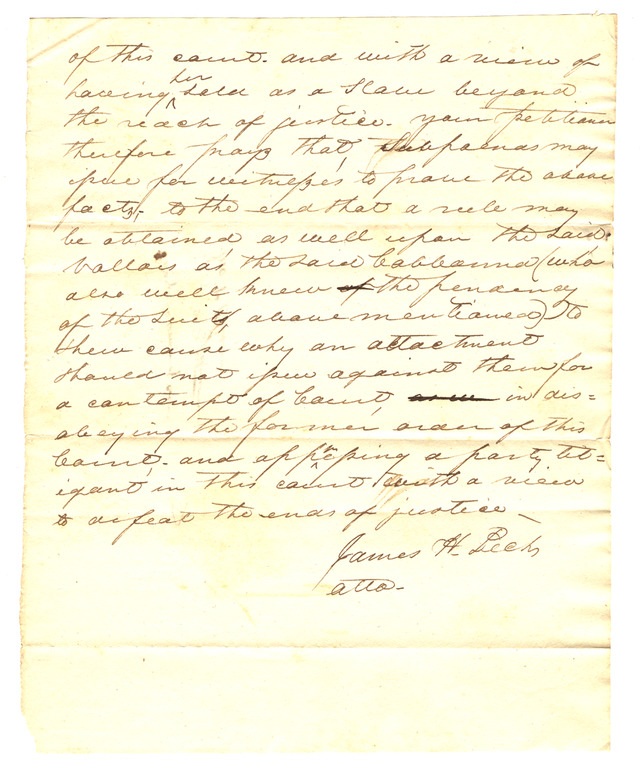 of this court. and with a view of
having her sold as a Slave beyond
the reach of justice. your petitioner
therefore prays that, Subpoenas may
issue for witnesses to prove the above
facts,- to the end that a rule may
be obtained as well upon the said
Vallois as the said Cabbanna (who
also well knew of the pendency
of the suits, above mentioned) to
shew cause why an attactment
should not issue against them for
a contempt of Court, in dis=
obeying the former order of this
Court,- and oppressing a party lit=
igant in this court with a view
to defeat the ends of justice _
James H. Peck
atto-